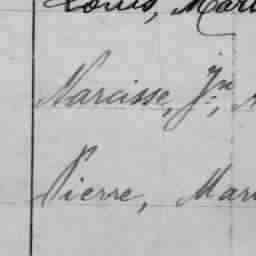 Louis, Mari
Narcisse, Jn,
Pierre, Mari